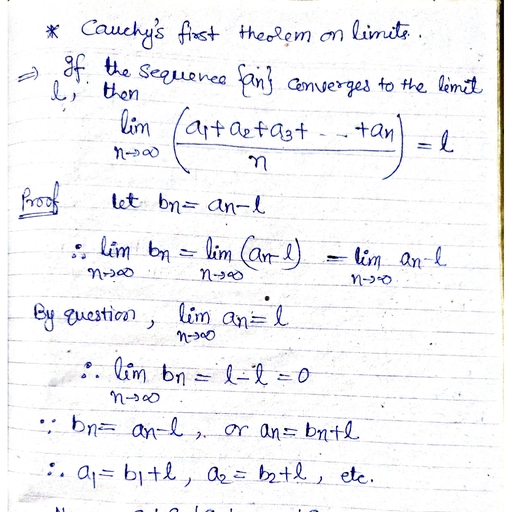 * Cauchy's first theorem on limits.
⇒ If the sequence {an} converges to the limit
l, then
lim n→∞ (a1+a2+a3+ - - - +an / n) = l
Proof let bn = an-l
∴ lim n→∞ bn = lim n→∞ (an-l) = lim n→∞ an-l
By question, lim n→∞ an = l
∴ lim n→∞ bn = l-l = 0
∵ bn = an-l, or an = bn+l
∴ a1 = b1+l, a2 = b2+l, etc.